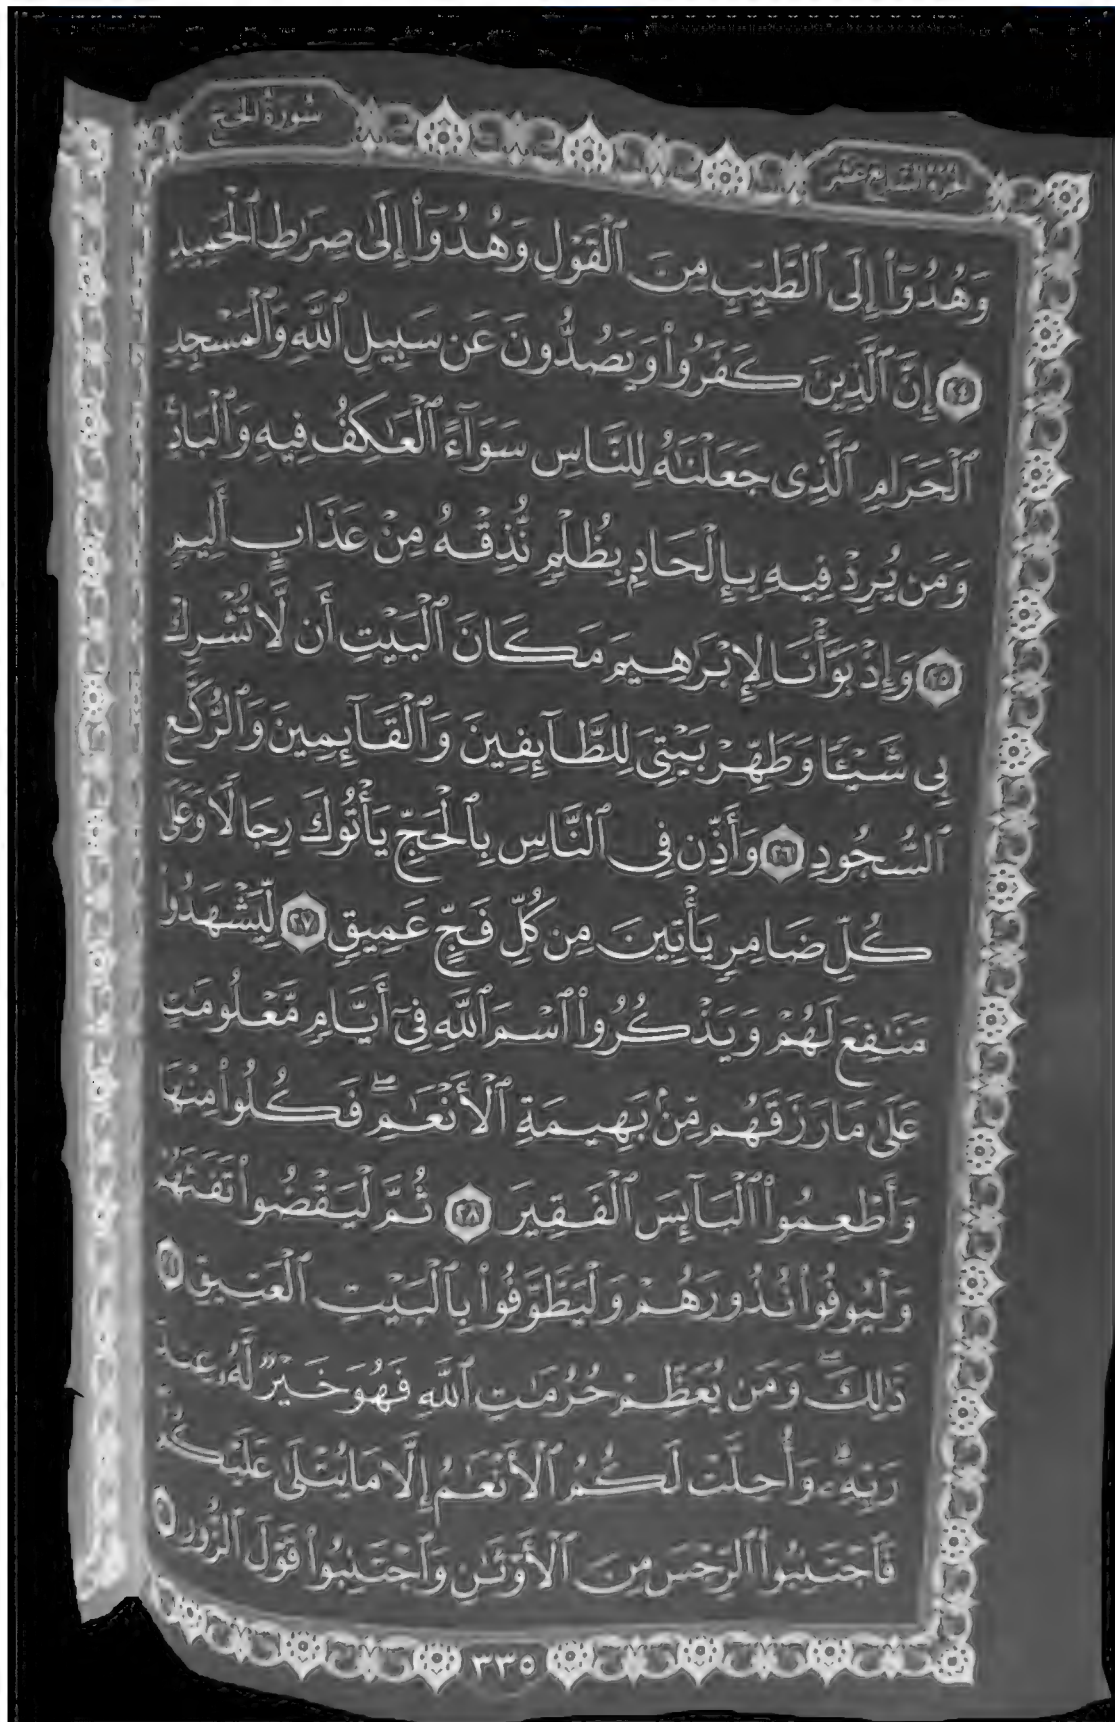 سُورَةُ الحَجّ
الجُزْءُ السَّابِعَ عَشَرَ
وَهُدُوٓا۟ إِلَى ٱلطَّيِّبِ مِنَ ٱلْقَوْلِ وَهُدُوٓا۟ إِلَىٰ صِرَٰطِ ٱلْحَمِيدِ
٢٤ إِنَّ ٱلَّذِينَ كَفَرُوا۟ وَيَصُدُّونَ عَن سَبِيلِ ٱللَّهِ وَٱلْمَسْجِدِ
ٱلْحَرَامِ ٱلَّذِى جَعَلْنَٰهُ لِلنَّاسِ سَوَآءً ٱلْعَٰكِفُ فِيهِ وَٱلْبَادِ
وَمَن يُرِدْ فِيهِ بِإِلْحَادٍۭ بِظُلْمٍ نُّذِقْهُ مِنْ عَذَابٍ أَلِيمٍ
٢٥ وَإِذْ بَوَّأْنَا لِإِبْرَٰهِيمَ مَكَانَ ٱلْبَيْتِ أَن لَّا تُشْرِكْ
بِى شَيْـًٔا وَطَهِّرْ بَيْتِىَ لِلطَّآئِفِينَ وَٱلْقَآئِمِينَ وَٱلرُّكَّعِ
ٱلسُّجُودِ ٢٦ وَأَذِّن فِى ٱلنَّاسِ بِٱلْحَجِّ يَأْتُوكَ رِجَالًا وَعَلَىٰ
كُلِّ ضَامِرٍ يَأْتِينَ مِن كُلِّ فَجٍّ عَمِيقٍ ٢٧ لِّيَشْهَدُوا۟
مَنَٰفِعَ لَهُمْ وَيَذْكُرُوا۟ ٱسْمَ ٱللَّهِ فِىٓ أَيَّامٍ مَّعْلُومَٰتٍ
عَلَىٰ مَا رَزَقَهُم مِّنۢ بَهِيمَةِ ٱلْأَنْعَٰمِ ۖ فَكُلُوا۟ مِنْهَا
وَأَطْعِمُوا۟ ٱلْبَآئِسَ ٱلْفَقِيرَ ٢٨ ثُمَّ لْيَقْضُوا۟ تَفَثَهُمْ
وَلْيُوفُوا۟ نُذُورَهُمْ وَلْيَطَّوَّفُوا۟ بِٱلْبَيْتِ ٱلْعَتِيقِ
ذَٰلِكَ ۖ وَمَن يُعَظِّمْ حُرُمَٰتِ ٱللَّهِ فَهُوَ خَيْرٌ لَّهُۥ عِندَ
رَبِّهِۦ ۗ وَأُحِلَّتْ لَكُمُ ٱلْأَنْعَٰمُ إِلَّا مَا يُتْلَىٰ عَلَيْكُمْ
فَٱجْتَنِبُوا۟ ٱلرِّجْسَ مِنَ ٱلْأَوْثَٰنِ وَٱجْتَنِبُوا۟ قَوْلَ ٱلزُّورِ
٣٣٥